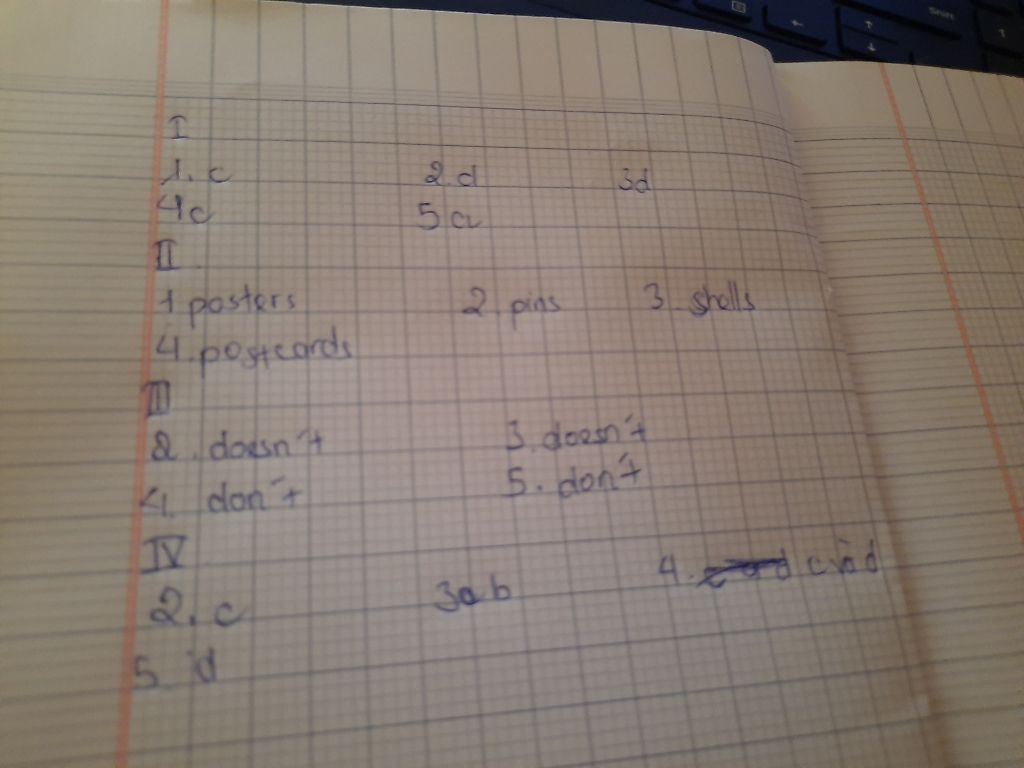 I
1. c 2. d 3d
4c 5a
II
1 posters 2. pins 3. shells
4. postcards
III
2. doesn't 3. doesn't
4. don't 5. don't
IV
2. c 3 b 4. c và d
5. d